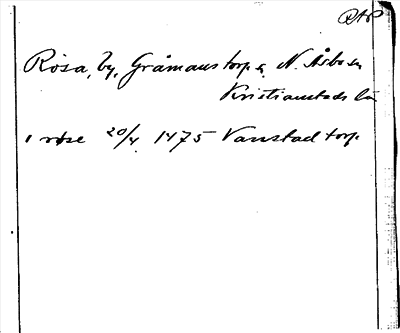 RAP
Rösa, by, Gråmanstorps, N. Åsbo h
Kristianstads län
i røse 20/4 1475 Vanstad torp.